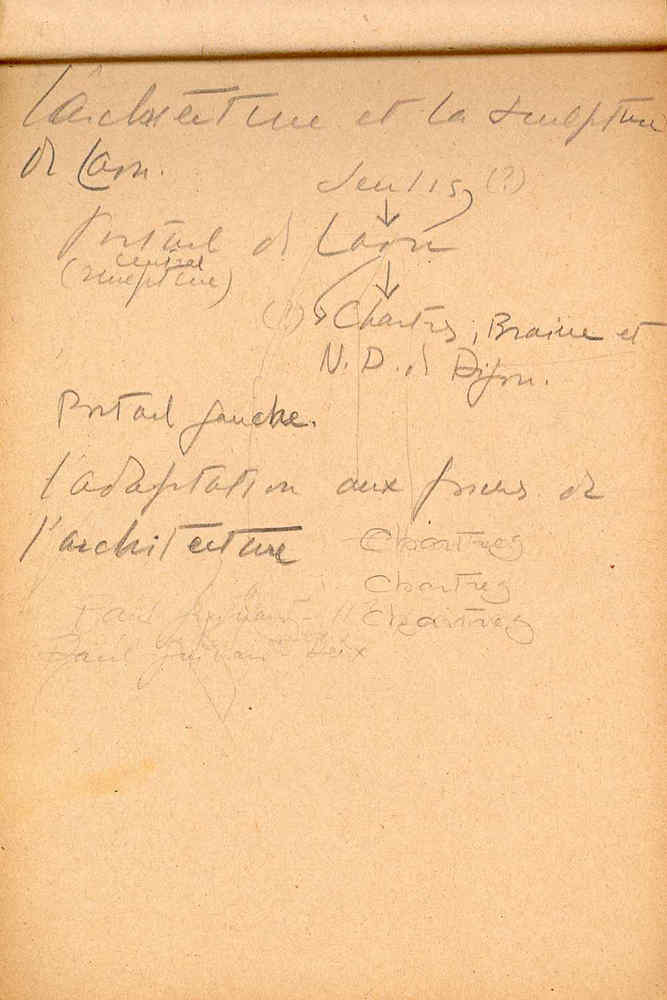 L'architecture et la sculpture
de Laon.
Senlis (?)
Portail de Laon
central
(sculpture)
(?) Chartres, Braine et
N.D. de Dijon.
Portail gauche.
l'adaptation aux formes de
l'architecture
Chartres
Chartres
Paul Chartres
Paul